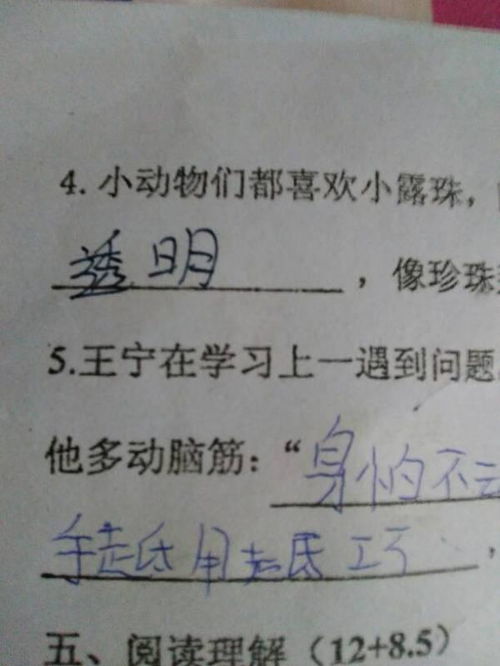 4. 小动物们都喜欢小露珠，
透明，像珍珠
5.王宁在学习上一遇到问题
他多动脑筋：“身怕不
手用巧，
五、阅读理解（12+8.5）